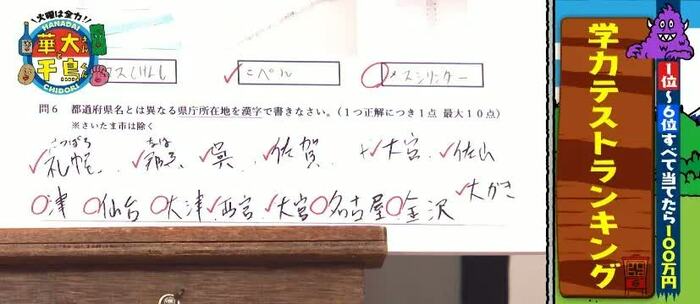 火曜は全力!
HANADAI
華大さんと千鳥くん
CHIDORI
コペル
メスシリンダー
問6 都道府県名とは異なる県庁所在地を漢字で書きなさい。(1つ正解につき1点 最大10点)
※さいたま市は除く
さっぽろ
札幌、 呉、 佐賀 大宮、 佐山
津 仙台 大津 西宮、 大宮 名古屋 金沢 大がき
学力テストランキング
1位〜6位すべて当てたら100万円